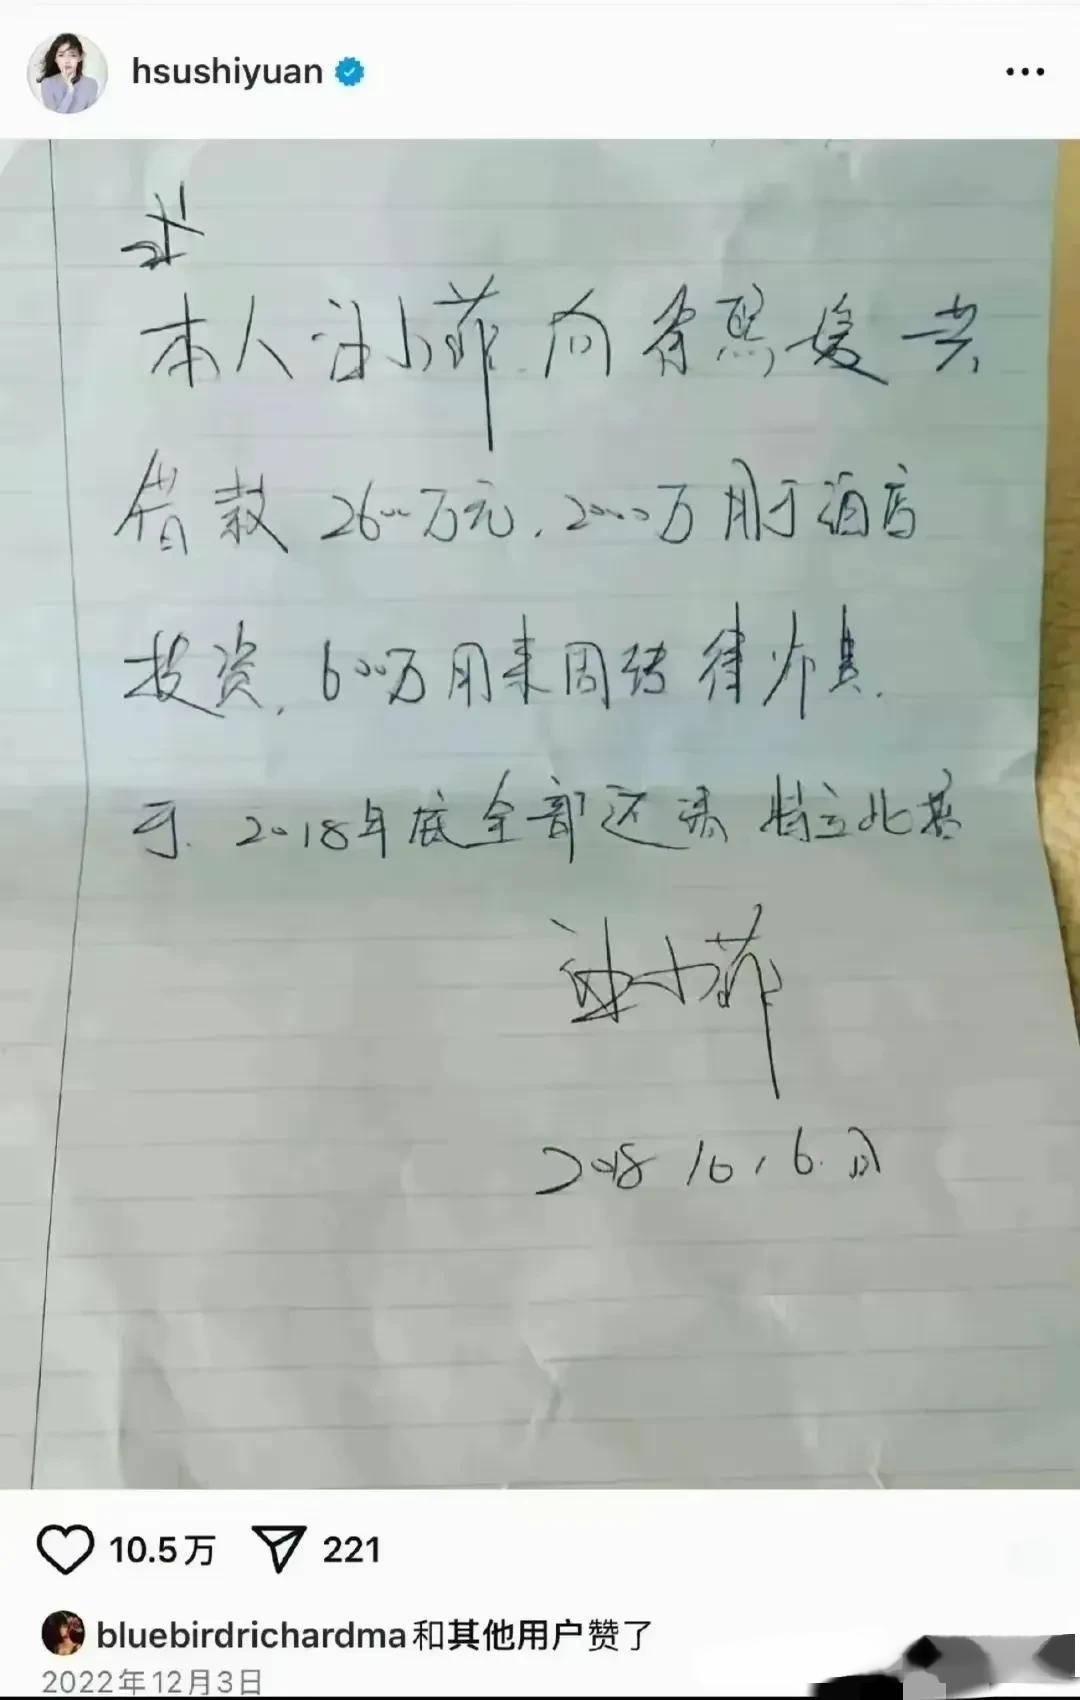 hsushiyuan
本人汪小菲向徐熙媛共
借款2600万元,2000万用于酒店
投资,600万用来周转律师费.
于2018年底全部还清 特立此据
汪小菲
2018 10,6.日
10.5万 221
bluebirdrichardma和其他用户赞了
2022年12月3日